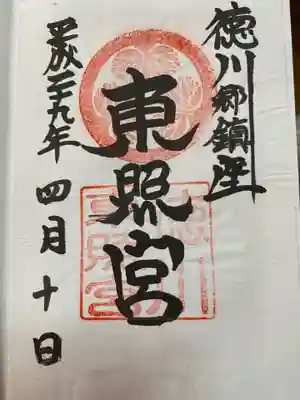 徳川郷鎮座
東照宮
平成二十九年四月十日